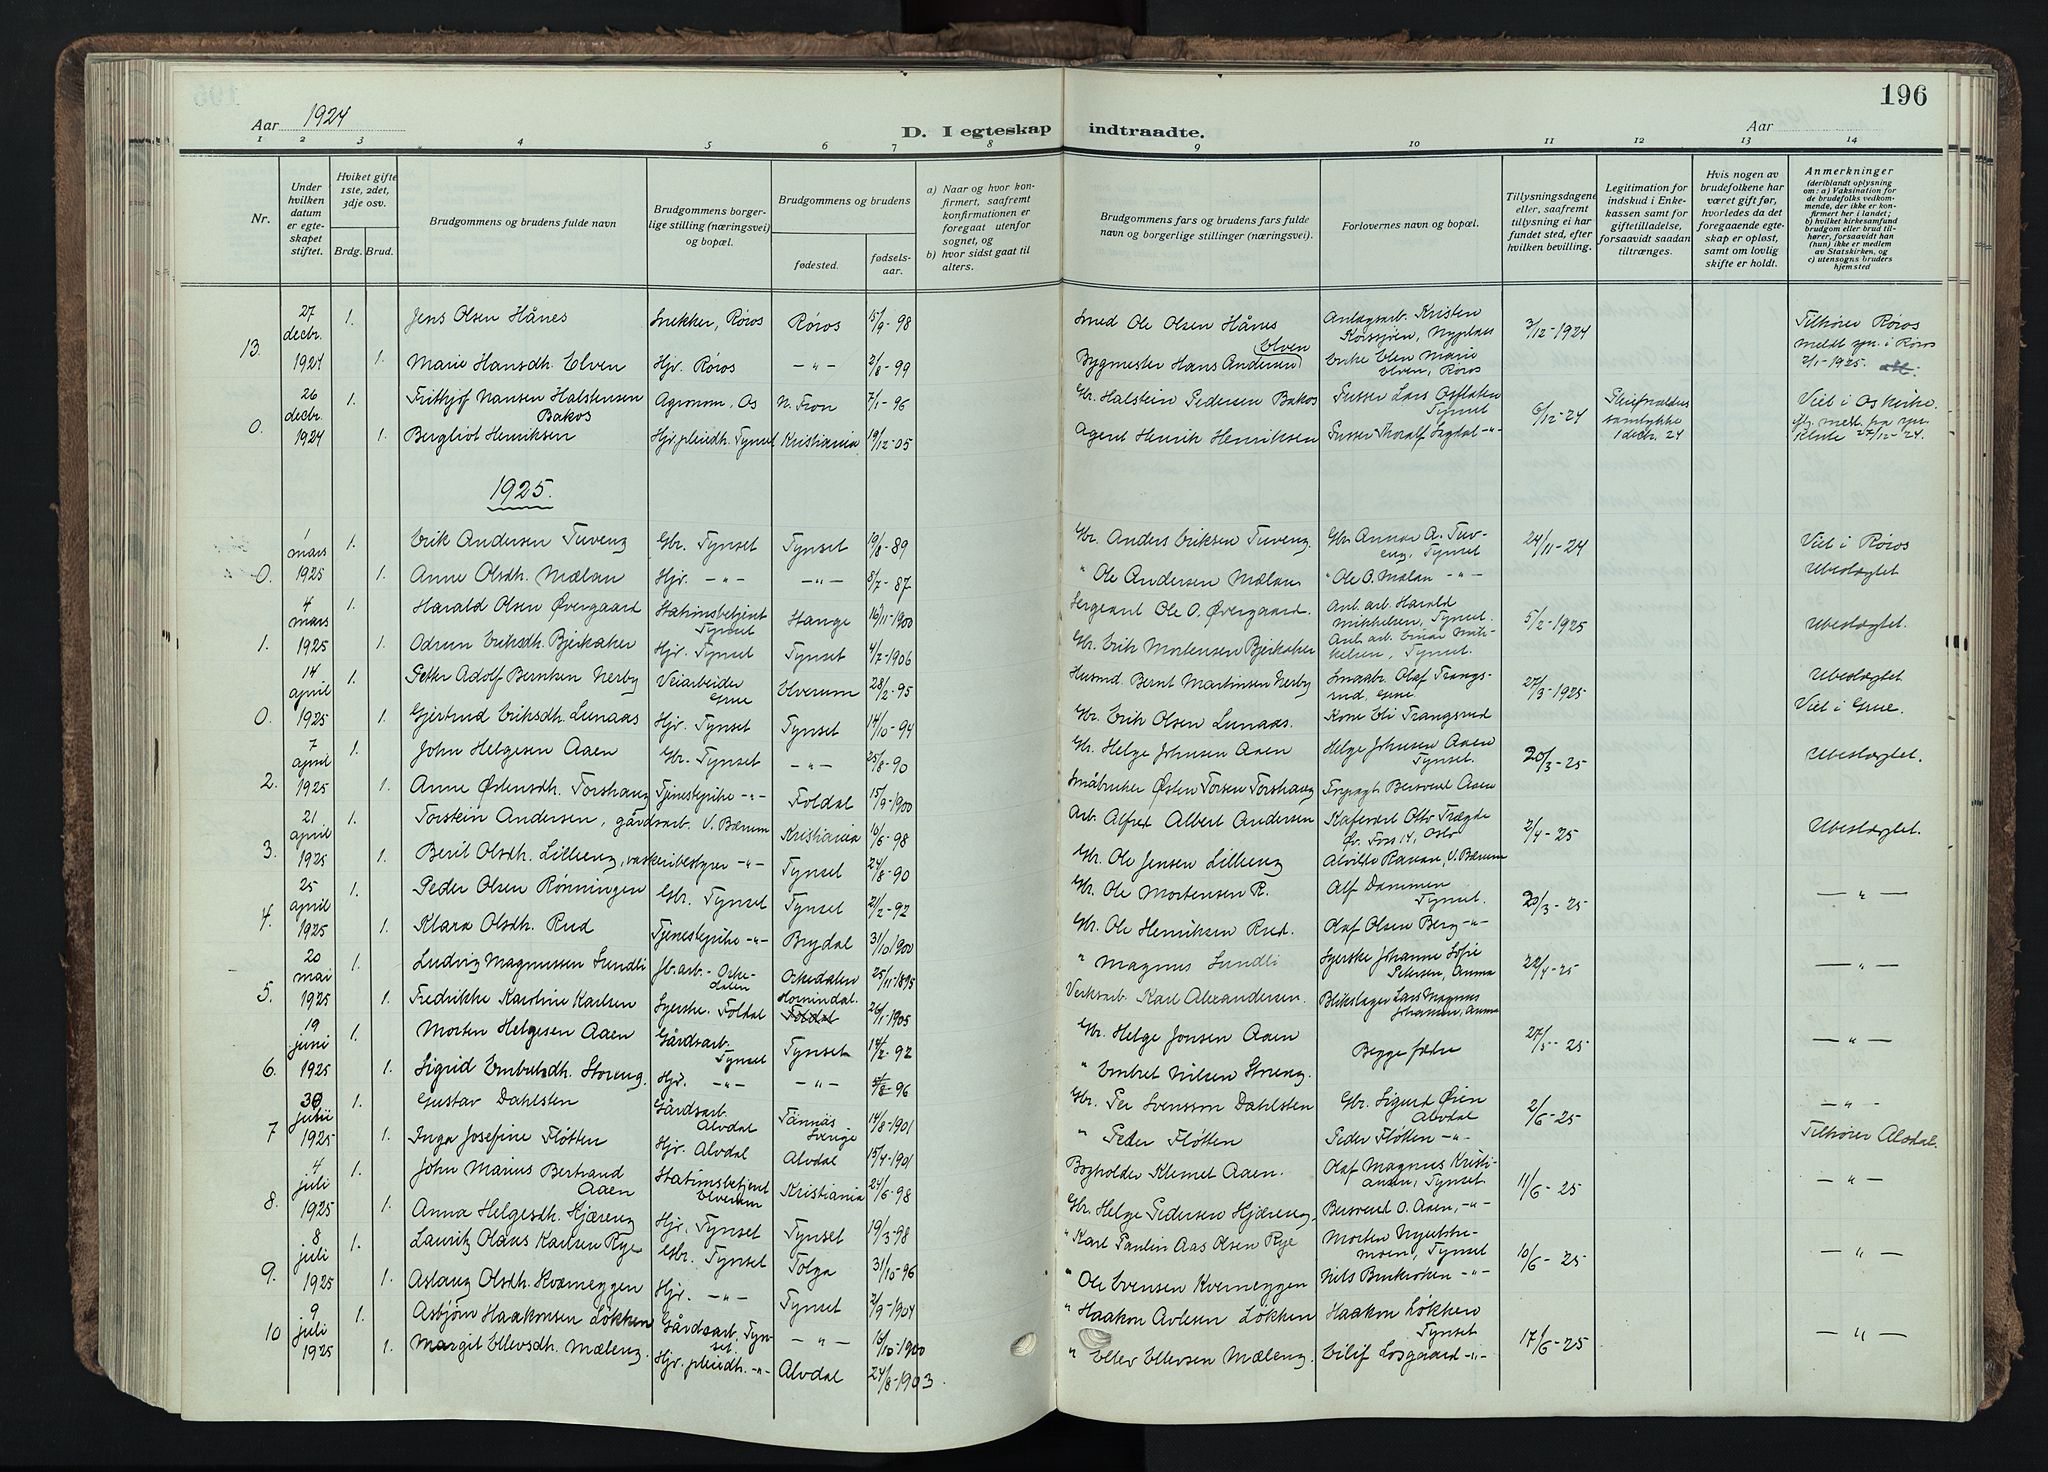 Aar 1924
D. I egteskap indtraadte.
196
Aar
1 2 3 4 5 6 7 8 9 10 11 12 13 14
Nr.
Under hvilken datum er egteskapet stiftet.
Hviket gifte 1ste, 2det, 3dje osv.
Brdg. Brud.
Brudgommens og brudens fulde navn
Brudgommens borgerlige stilling (næringsvei) og bopæl.
Brudgommens og brudens
fødested. fødselsaar.
a) Naar og hvor konfirmert, saafremt konfirmationen er foregaat utenfor sognet, og
b) hvor sidst gaat til alters.
Brudgommens fars og brudens fars fulde navn og borgerlige stillinger (næringsvei).
Forlovernes navn og bopæl.
Tillysningsdagene eller, saafremt tillysning ei har fundet sted, efter hvilken bevilling.
Legitimation for indskud i Enkekassen samt for giftetilladelse, forsaavidt saadan tiltrænges.
Hvis nogen av brudefolkene har været gift før, hvorledes da det foregaaende egteskap er opløst, samt om lovlig skifte er holdt.
Anmerkninger
(deriblandt oplysning om: a) Vaksination for de brudefolks vedkommende, der ikke er konfirmert her i landet; b) hvilket kirkesamfund brudgom eller brud tilhører, forsaavidt han (hun) ikke er medlem av Statskirken, og c) utensogns bruders hjemsted
13. 27 decbr. 1924 1. Jens Olsen Hånes Snekker, Røros Røros 15/9-98 Smed Ole Olsen Hånes Anlægsarb. Kristen Korssjøen, Nyplass 3/12-1924 Tilhører Røros
1. Marie Hansdh. Elven Hjv. Røros -"- 2/8-99 Bygmester Hans Andersen Elven Enke Elen Marie Elven, Røros meldt spr. i Røros 2/1-1925.
0. 26 decbr. 1924 1. Frithjof Nansen Halstensen Bakos Agronom, Os N. Fron 7/1-96 Gbr. Halstein Pedersen Bakos Lars Tynset 6/12-24 samtykke 1 decbr. 24 Viet i Os kirke.
1. Bergliot Henriksen Hjv. pleiedh. Tynset Kristiania 19/12-05 Agent Henrik Henriksen Thoralf -"- 27/12-24.
1925.
0. 1 mars 1925 1. Erik Andersen Tuveng Gbr. Tynset Tynset 19/8-89 Gbr. Anders Eriksen Tuveng. Gbr. A. Tuveng, Tynset 24/11-24 Viet i Røros
1. Anne Olsdh. Mælan Hjv. -"- -"- 5/7-87 " Ole Andersen Mælan " Ole O. Mælan -"- Ubeslægtet
1. 4 mars 1925 1. Harald Olsen Øvergaard Stationsbetjent Tynset Stange 16/11-1900 Sergeant Ole O. Øvergaard. Anl. arb. Harald Mikkelsen, Tynset. 5/2-1925 Ubeslægtet.
1. Odrun Eriksdh. Bjerkaker Hjv. Tynset Tynset 4/7-1906 Gbr. Erik Mortensen Bjerkaker Anl. arb. Einar Mikkelsen, Tynset.
0. 14 april 1925 1. Petter Adolf Berntsen Nerby Veiarbeider Grue Elverum 28/2-95 Husmd. Bernt Martinsen Nerby Smaabr. Olaf Trangsrud, Grue. 27/3-1925 Ubeslægtet
1. Gjertrud Eriksdh. Lunaas Hjv. Tynset Tynset 14/10-94 Gbr. Erik Olsen Lunaas. Kone Eli Trangsrud Viet i Grue.
2. 7 april 1925 1. John Helgesen Aaen Gbr. Tynset -"- 25/8-90 Gbr. Helge Johnsen Aaen Helge Johnsen Aaen Tynset. 20/3-25 Ubeslægtet.
1. Anne Østensdh. Torshaug Tjenestepike -"- Foldal 15/9-1900 Småbruker Østen Torsen Torshaug Bersvend Aaen
3. 21 april 1925 1. Torstein Andersen, gårdsarb. V. Bærum Kristiania 10/6-98 Arb. Alfred Albert Andersen Kafévært Otto Trægde Øv. Foss 14, Oslo 2/4-25 Ubeslægtet.
1. Berit Olsdh. Lillieng, vaskeribestyrer -"- Tynset 24/8-90 Gbr. Ole Jensen Lillieng V. Bærum
4. 25 april 1925 1. Peder Olsen Rønningen Gbr. Tynset Tynset 21/2-92 Gbr. Ole Mortensen R. Alf Dammen Tynset. 20/3-25 -"-
1. Klara Olsdh. Rud Tjenestepike -"- Brydal 31/10-1900 Gbr. Ole Henriksen Rud. Olaf Olsen Berg -"-
5. 20 mai 1925 1. Ludvig Magnussen Sundli Jb. arb. - Orkedalen Orkedalen 25/11-1895 " Magnus Sundli Syerske Johanne Sofie Petersen, Anma 22/4-25 -"-
1. Fredrikke Karoline Karlsen Syerske. Foldal Hornindal. Foldal 26/1-1905 Verksarb. Karl Alexandersen. Blikslager Lars Magnus Johansen, Anma
6. 19 juni 1925 1. Morten Helgesen Aaen Gårdsarb. Tynset Tynset 14/2-92 Gbr. Helge Jonsen Aaen Begge fædre 27/5-25 -"-
1. Sigrid Embretsdh. Storeng. Hjv. -"- -"- 5/8-96 " Embret Nilsen Storeng.
7 30 juni 1925 1. Gustav Dahlsten Gårdsarb. Alvdal Tännäs Sverige 14/8-1901 Gbr. Per Svensson Dahlsten Gbr. Sigurd Øien Alvdal 2/6-25 -"-
1. Inga Josefine Fløtten Hjv. Alvdal Alvdal 15/4-1901 " Peder Fløtten Peder Fløtten -"- Tilhører Alvdal.
8. 4 juli 1925 1. John Marius Bertrand Aaen Stationsbetjent Elverum Kristiania 24/6-98 Bogholder Klemet Aaen. Olaf Magnus Kristiansen, Tynset 11/6-25 -"-
1. Anna Helgesdh. Hjæreng Hjv. Tynset Tynset 19/3-98 Gbr. Helge Pedersen Hjæreng. Bersvend O. Aaen, -"-
9. 8 juli 1925 1. Lauritz Olaus Karlsen Rye Gbr. Tynset Tolga 31/10-96 " Karl Paulin Aas Olsen Rye Morten Nyutstumoen, Tynset 10/6-25 -"-
1. Aslaug Olsdh. Kværneggen Hjv. -"- Tynset 2/9-1904 " Ole Evensen Kverneggen Nils Brukroken -"-
10 9 juli 1925 1. Asbjørn Haakonsen Løkken Gårdsarb. Tynset. -"- 15/10-1900 " Haakon Avlesen Løkken Haakon Løkken Tynset 17/6-25 -"-
1. Margit Ellevsdh. Mæleng. Hjv. pleiedh. -"- Alvdal 24/8-1903. " Ellev Ellevsen Mæleng Eilif Losgaard -"-